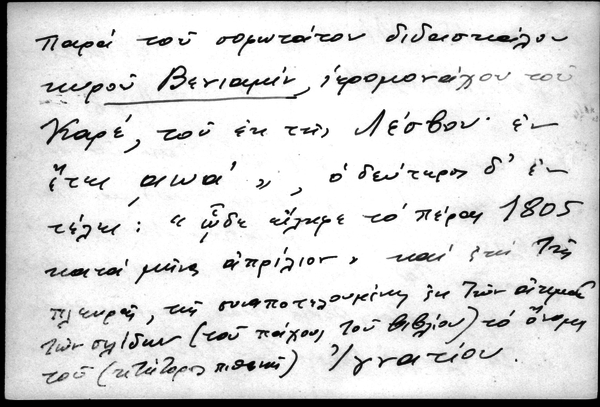 παρά τοῦ σοφωτάτου διδασκάλου
κυροῦ Βενιαμίν, ἱερομονάχου τοῦ
Καρέ, τοῦ ἐκ τῆς Λέσβου· ἐν
ἔτει αωα´», ὁ δεύτερος δ' ἐν
τέλει: "ὧδε εἴληφε τό πέρας 1805
κατά μῆνα ἀπρίλιον" καί ἐπί τῆς
πλευρᾶς, τῆς συναποτελουμένης ἐκ τῶν
τῶν σελίδων (τοῦ πάχους τοῦ βιβλίου) τό ὄνομα
τοῦ (κτήτορος πιθανῶς) Ἰγνατίου.